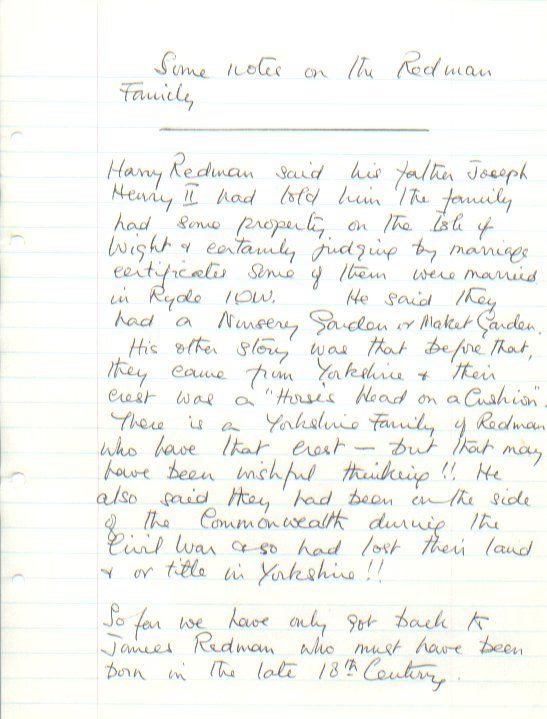 Some notes on the Redman
Family
Harry Redman said his father Joseph
Henry II had told him the family
had some property on the Isle of
Wight & certainly judging by marriage
certificates some of them were married
in Ryde IOW. He said they
had a Nursery Garden or Maket Garden.
His other story was that before that,
they came from Yorkshire & their
crest was a "Horse's Head on a Cushion".
There is a Yorkshire Family of Redman
who have that crest — but that may
have been wishful thinking!! He
also said they had been on the side
of the Commonwealth during the
Civil War & so had lost their land
& or title in Yorkshire!!
So far we have only got back to
James Redman who must have been
born in the late 18th Century.